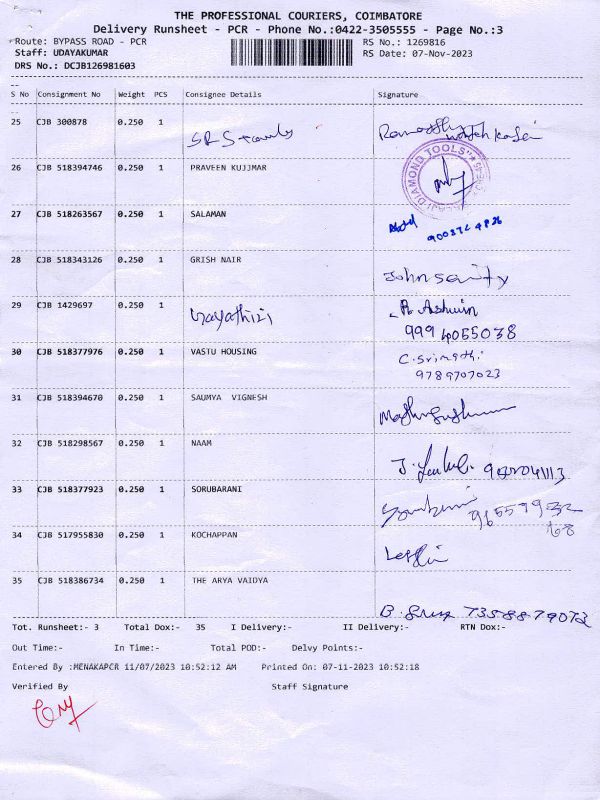 THE PROFESSIONAL COURIERS, COIMBATORE
Delivery Runsheet - PCR - Phone No.:0422-3505555 - Page No.:3
Route: BYPASS ROAD - PCR RS No.: 1269816
Staff: UDAYAKUMAR RS Date: 07-Nov-2023
DRS No.: DCJB126981603
S No Consignment No Weight PCS Consignee Details Signature
25 CJB 300878 0.250 1
26 CJB 518394746 0.250 1 PRAVEEN KUJJMAR
DIAMOND TOOLS
27 CJB 518263567 0.250 1 SALAMAN
28 CJB 518343126 0.250 1 GRISH NAIR
29 CJB 1429697 0.250 1 Gayathiri R. Ashwin
999 4055038
30 CJB 518377976 0.250 1 VASTU HOUSING C. Srimathi
9789707023
31 CJB 518394670 0.250 1 SAUMYA VIGNESH
32 CJB 518298567 0.250 1 NAAM
33 CJB 518377923 0.250 1 SORUBARANI
34 CJB 517955830 0.250 1 KOCHAPPAN
35 CJB 518386734 0.250 1 THE ARYA VAIDYA
7358879072
Tot. Runsheet:- 3 Total Dox:- 35 I Delivery:- II Delivery:- RTN Dox:-
Out Time:- In Time:- Total POD:- Delvy Points:-
Entered By :MENAKAPCR 11/07/2023 10:52:12 AM Printed On: 07-11-2023 10:52:18
Verified By Staff Signature